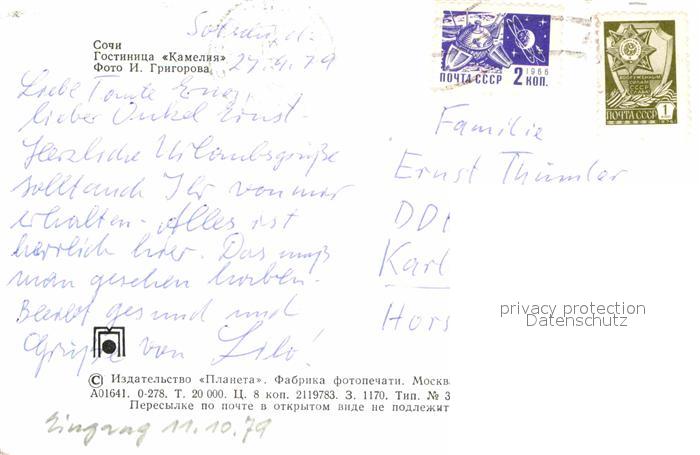 Сочи
Гостиница «Камелия»
Фото И. Григорова
27.9.79
Liebe Tante Erna,
lieber Onkel Ernst.
Herzliche Urlaubsgrüße
sollt auch Ihr von mir
erhalten. Alles ist
herrlich hier. Das muß
man gesehen haben.
Bleibt gesund und
Grüße von Lilo!
ПОЧТА СССР
1966
2 КОП.
ВООРУЖЕННЫМ
СИЛАМ
СССР
ПОЧТА СССР 1
Familie
Ernst Thümler
DD
Karl
Hors
privacy protection
Datenschutz
© Издательство «Планета». Фабрика фотопечати. Москв
А01641. 0-278. Т. 20 000. Ц. 8 коп. 2119783. З. 1170. Тип. № 3
Пересылке по почте в открытом виде не подлежит
Eingang 11.10.79